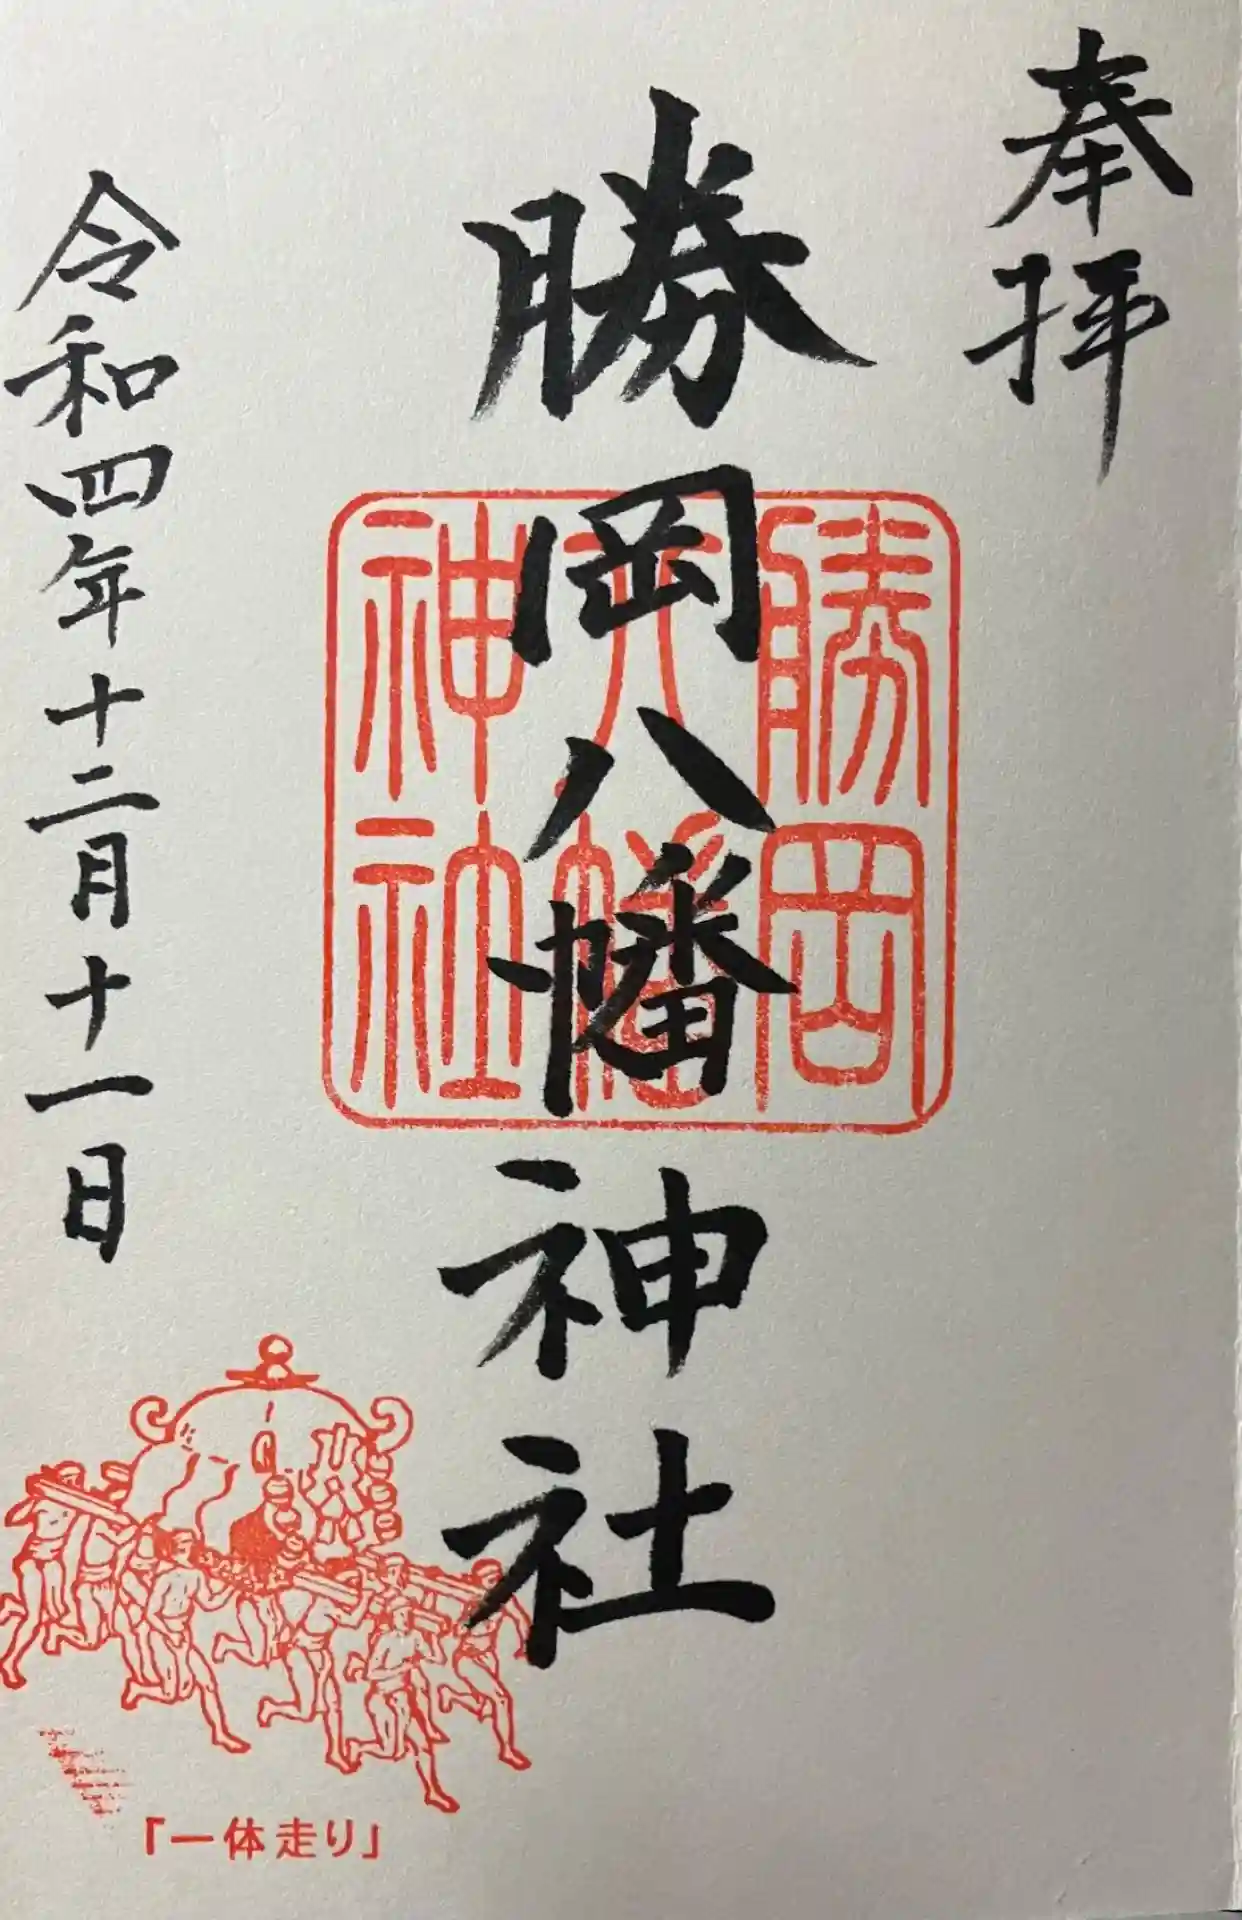 奉拝
勝岡八幡神社
勝岡八幡神社
令和四年十二月十一日
「一体走り」